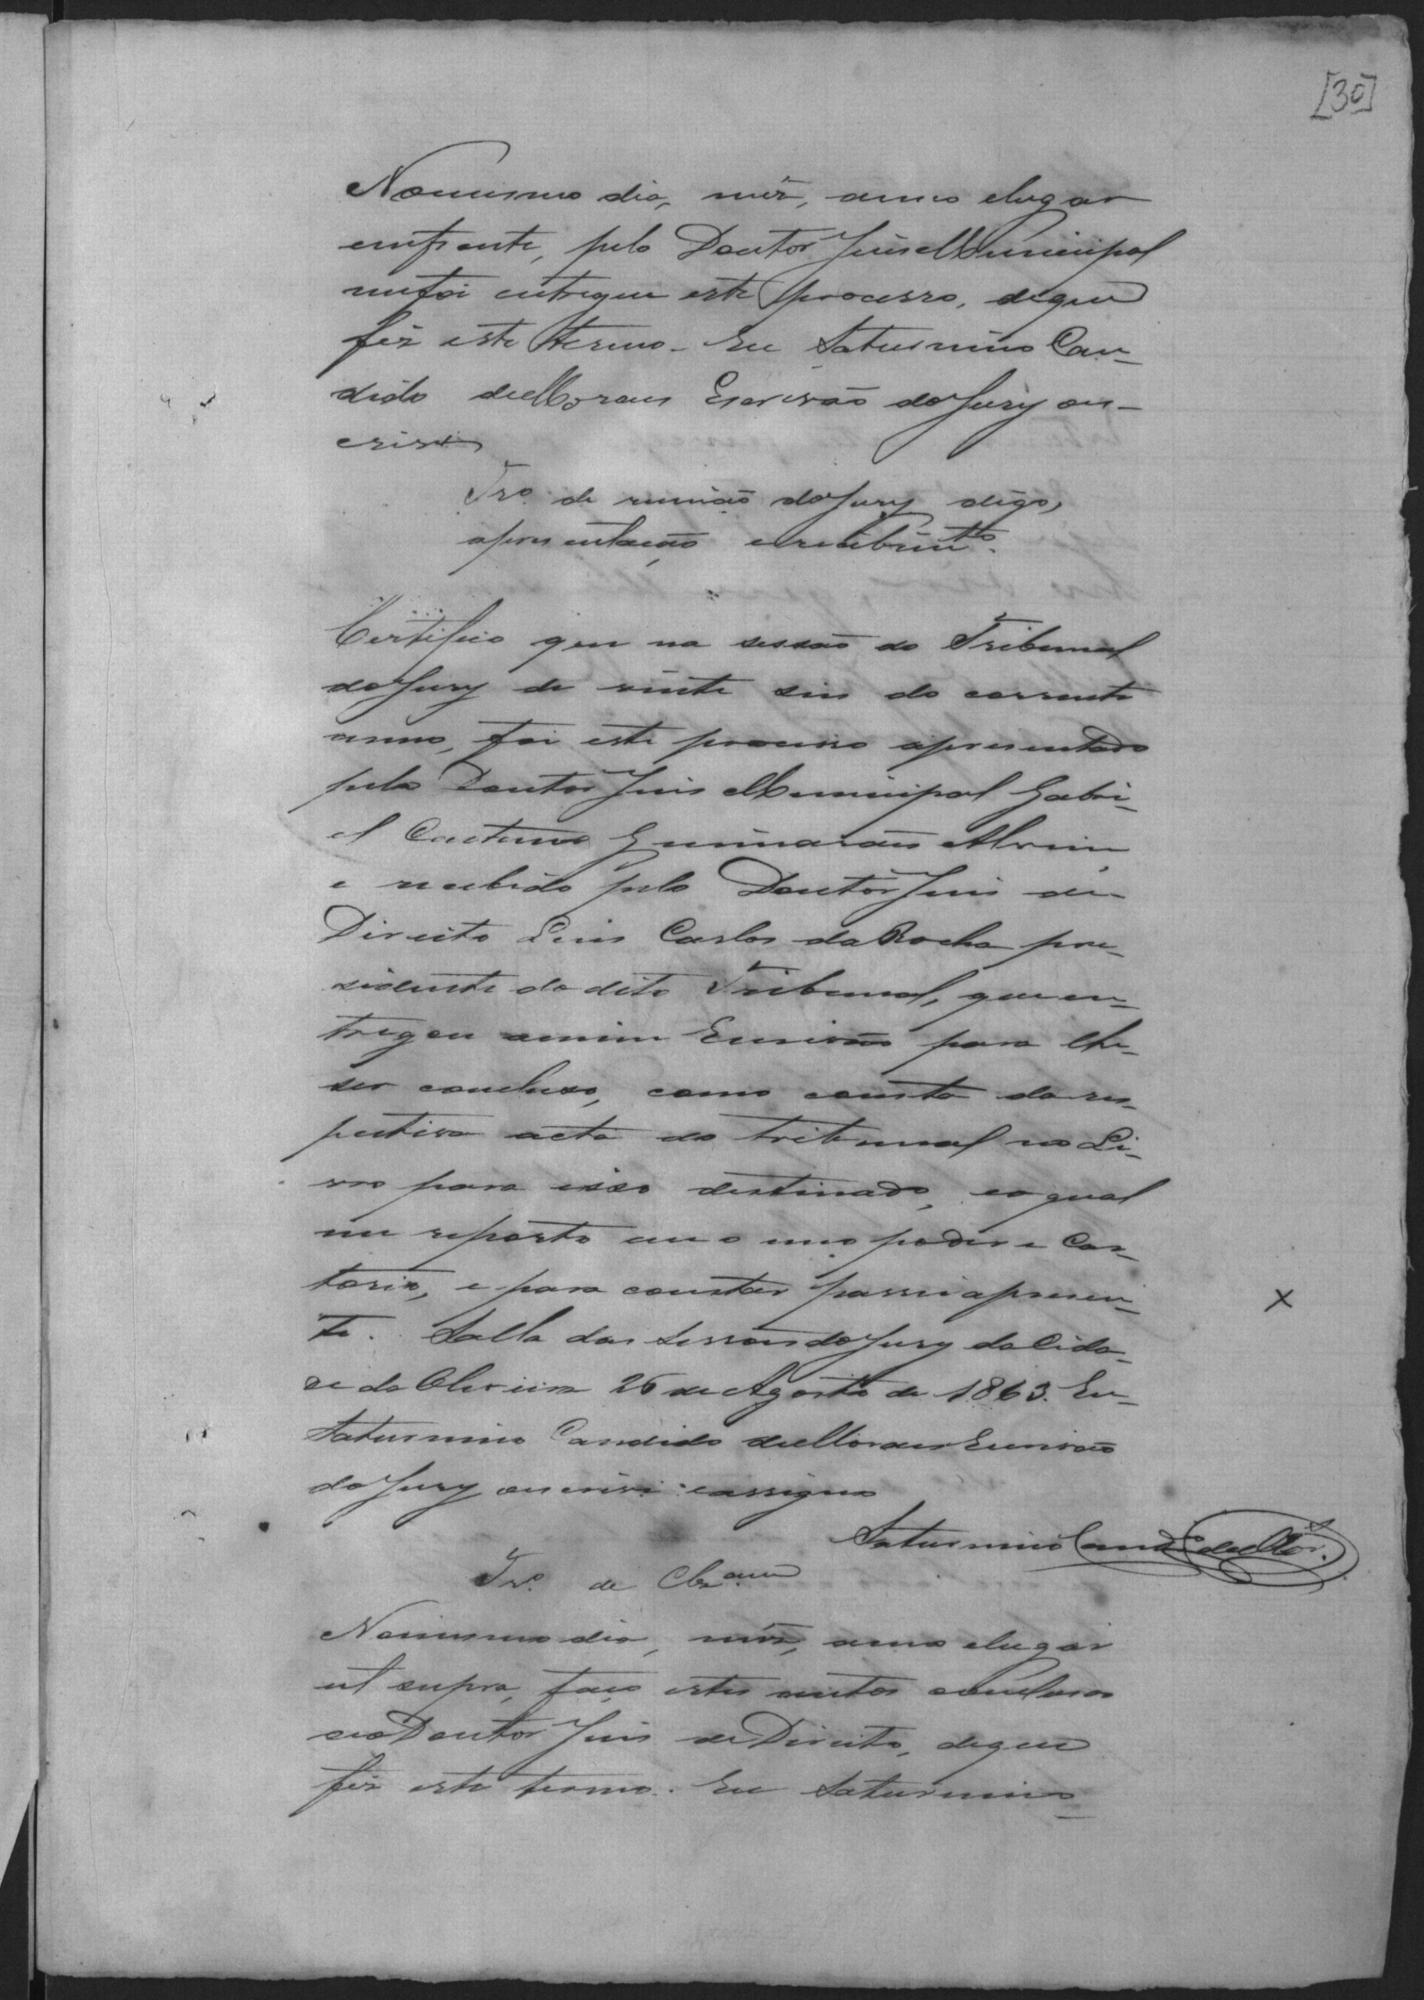 [30]
Nomesmo dia, mêz, anno elugar
emfrente, pelo Doutor Juis Municipal
mefoi entregue este processo, deque
fiz este termo. Eu Saturnino Can-
dido deMoraes Escrivão doJury oes-
crivi
Tro. de reunião doJury digo,
apresentação erecebimto.
Certifico que na sessão do Tribunal
doJury de vinte seis do corrente
anno, foi este processo apresentado
pelo Doutor Juis Municipal Gabri-
el Caetano Guimarães Alvim
e recebido pelo Doutor Juis de
Direito Luis Carlos da Rocha pre-
sidente do dito Tribunal, que en-
tregou amim Escrivão para lhe
ser concluso, como consta da res-
pectiva acta do tribunal no Li-
vro para isso destinado, eo qual
me reporto em o meo poder e Car-
torio, e para constar passei apresen-
te. Salla das sessoens doJury da Cida-
de da Oliveira 26 de Agosto de 1863. Eu
Saturnino Candido deMoraes Escrivão
doJury oescrivi eassigno
Saturnino Cando deMor.
Tro. de Clzam
Nomesmo dia, mêz, anno elugar
ut supra, faço estes autos conclusos
aoDoutor Juis de Direito, deque
fiz este termo. Eu Saturnino